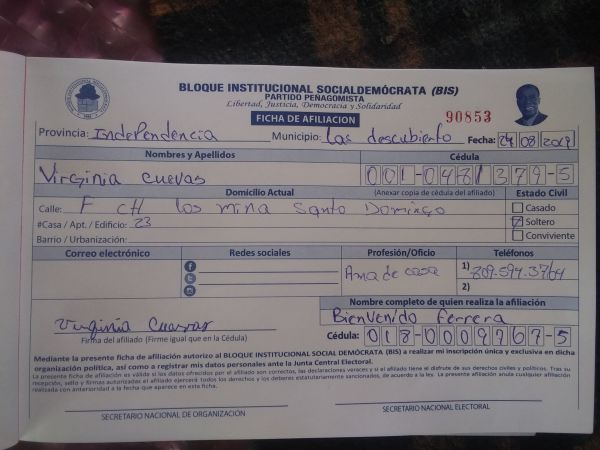 BLOQUE INSTITUCIONAL SOCIALDEMÓCRATA (BIS)
PARTIDO PEÑAGOMISTA
Libertad, Justicia, Democracia y Solidaridad
FICHA DE AFILIACION
90853
Provincia: Independencia Municipio: Las descubierto Fecha: 24 08 2019
Nombres y Apellidos Cédula
Virginia Cuevas 001-0481379-5
Domicilio Actual (Anexar copia de cédula del afiliado) Estado Civil
Calle: F CH los mina Santo Domingo Casado
#Casa / Apt. / Edificio: 23 Soltero
Barrio / Urbanización: Conviviente
Correo electrónico Redes sociales Profesión/Oficio Teléfonos
Ama de casa 1) 809.594.3764
2)
Nombre completo de quien realiza la afiliación
Bienvenido Ferrera
Virginia Cuevas
Firma del afiliado (Firme igual que en la Cédula) Cédula: 018-0009767-5
Mediante la presente ficha de afiliación autorizo al BLOQUE INSTITUCIONAL SOCIAL DEMÓCRATA (BIS) a realizar mi inscripción única y exclusiva en dicha
organización política, así como a registrar mis datos personales ante la Junta Central Electoral.
La presente ficha de afiliación es válida si los datos ofrecidos por el afiliado son correctos, las declaraciones veraces y si el afiliado tiene el disfrute de sus derechos civiles y políticos. Tras su
recepción, sello y firmas autorizadas el afiliado ejercerá todos los derechos y los deberes estatutariamente sancionados, de acuerdo a la ley. La presente afiliación anula cualquier afiliación
realizada con anterioridad a la fecha que aparece en esta ficha.
SECRETARIO NACIONAL DE ORGANIZACIÓN SECRETARIO NACIONAL ELECTORAL